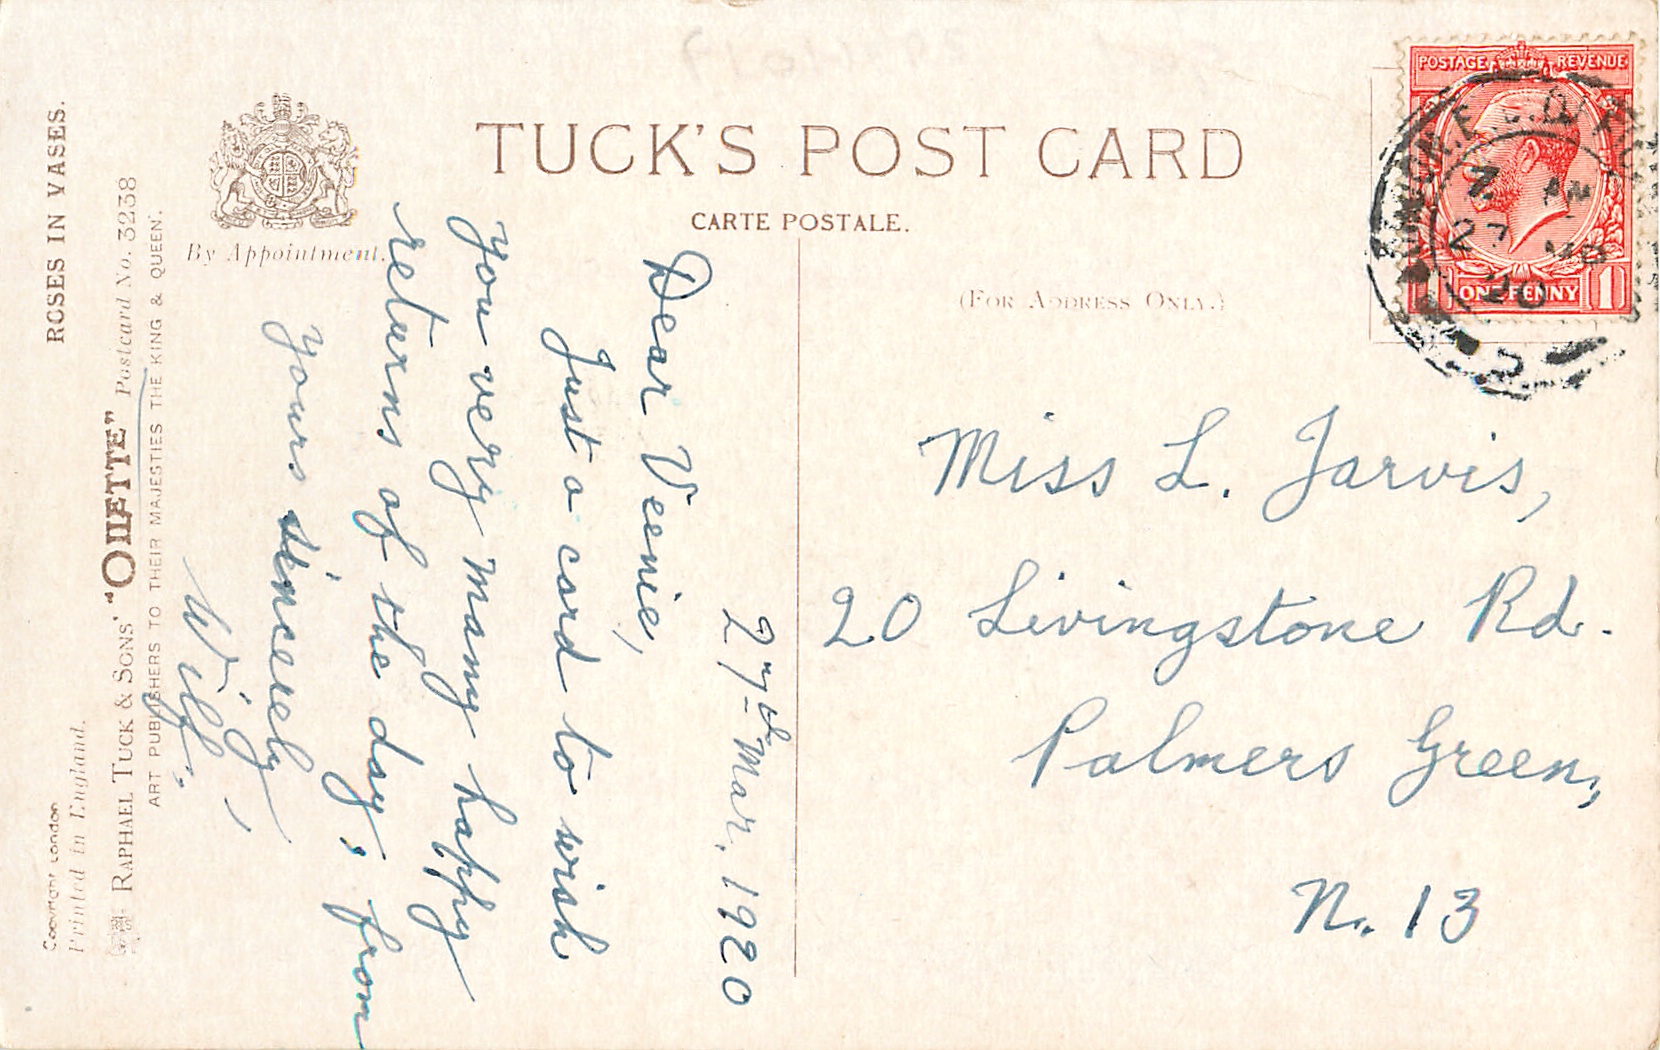 TUCK'S POST CARD
CARTE POSTALE.
(FOR ADDRESS ONLY.)
By Appointment.
POSTAGE REVENUE
ONE PENNY
1
27
ROSES IN VASES.
Copyright London
Printed in England.
RAPHAEL TUCK & SONS' "OILETTE" Postcard No. 3238
ART PUBLISHERS TO THEIR MAJESTIES THE KING & QUEEN.
27th Mar. 1920
Dear Veenie,
Just a card to wish
you very many happy
returns of the day, from
Yours sincerely,
Wilf.
Miss L. Jarvis,
20 Livingstone Rd.
Palmers Green,
N. 13